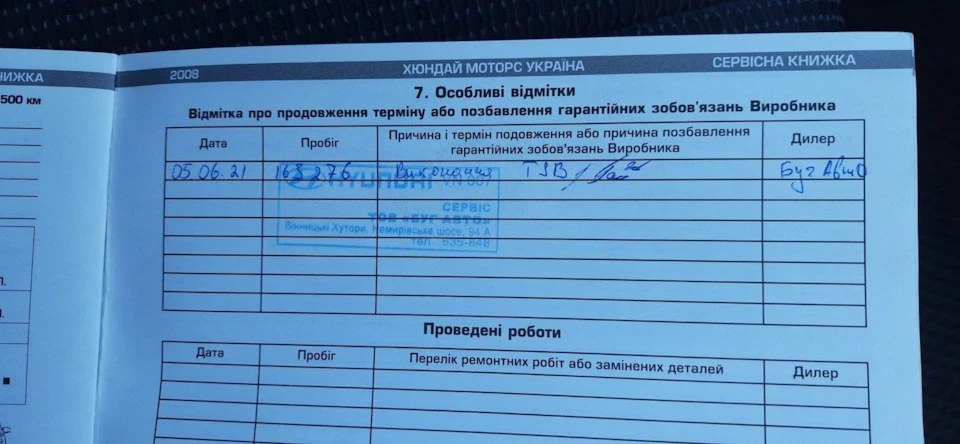 НИЖКА
500 км
2008
ХЮНДАЙ МОТОРС УКРАЇНА
СЕРВІСНА КНИЖКА
7. Особливі відмітки
Відмітка про продовження терміну або позбавлення гарантійних зобов'язань Виробника
Дата
Пробіг
Причина і термін подовження або причина позбавлення
гарантійних зобов'язань Виробника
Дилер
05.06.21 168276 Виконання Буг Авто
HYUNDAI VN 007
СЕРВІС
ТОВ «БУГ АВТО»
Вінницькі Хутори, Немирівське шосе, 94 А
тел. 635-848
Проведені роботи
Дата
Пробіг
Перелік ремонтних робіт або замінених деталей
Дилер